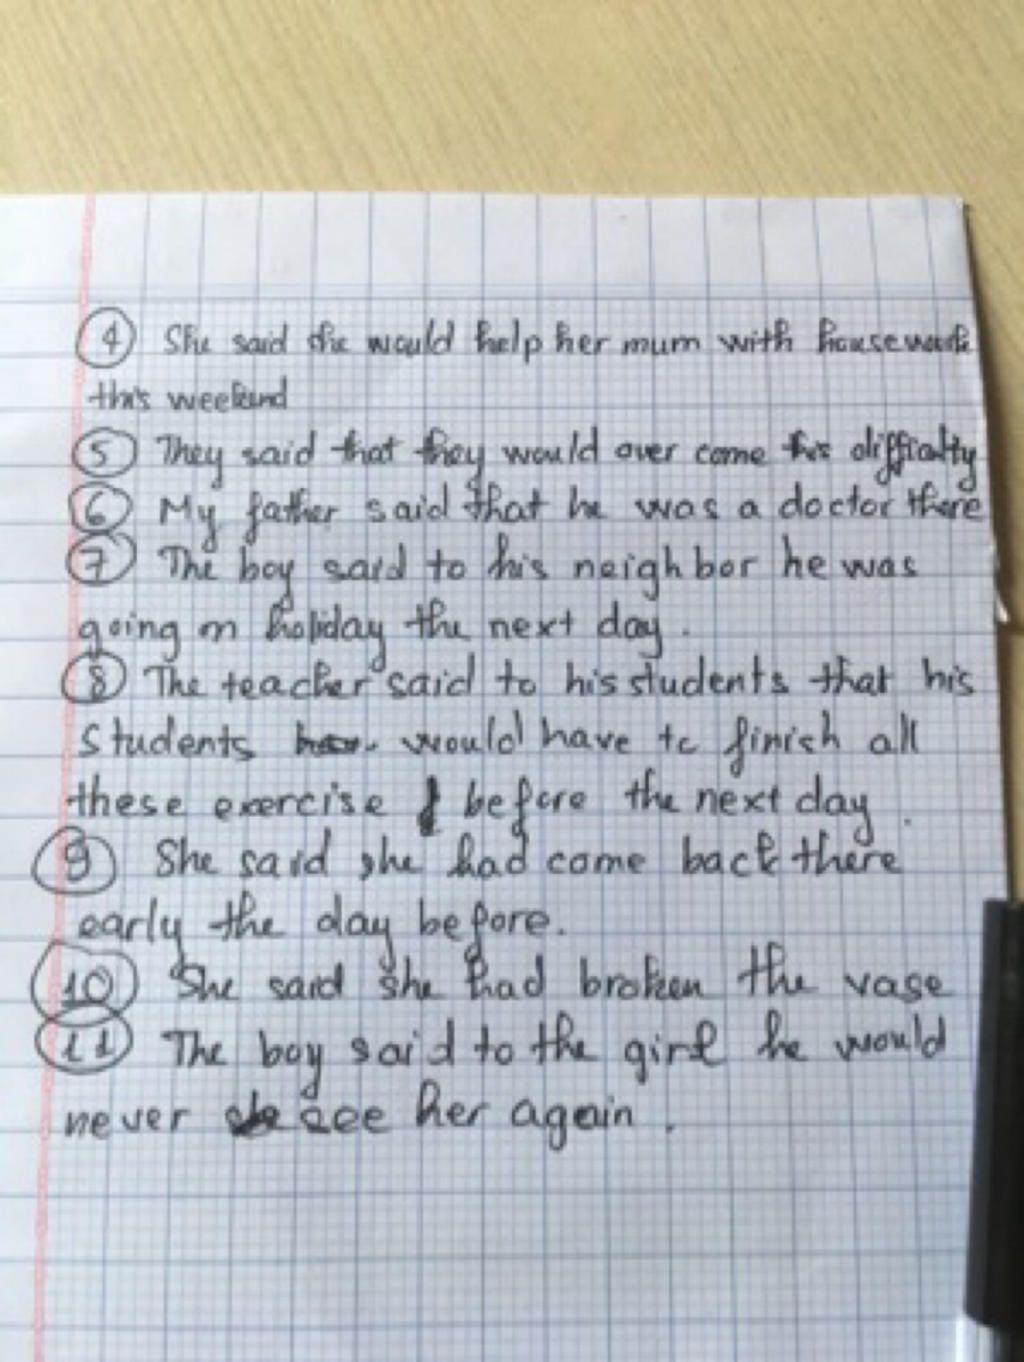 4 She said she would help her mum with housework
this weekend
5 They said that they would over come this difficulty
6 My father said that he was a doctor there
7 The boy said to his neighbor he was
going on holiday the next day.
8 The teacher said to his students that his
students would have to finish all
these exercise before the next day.
9 She said she had come back there
early the day before.
10 She said she had broken the vase
11 The boy said to the girl he would
never see her again.